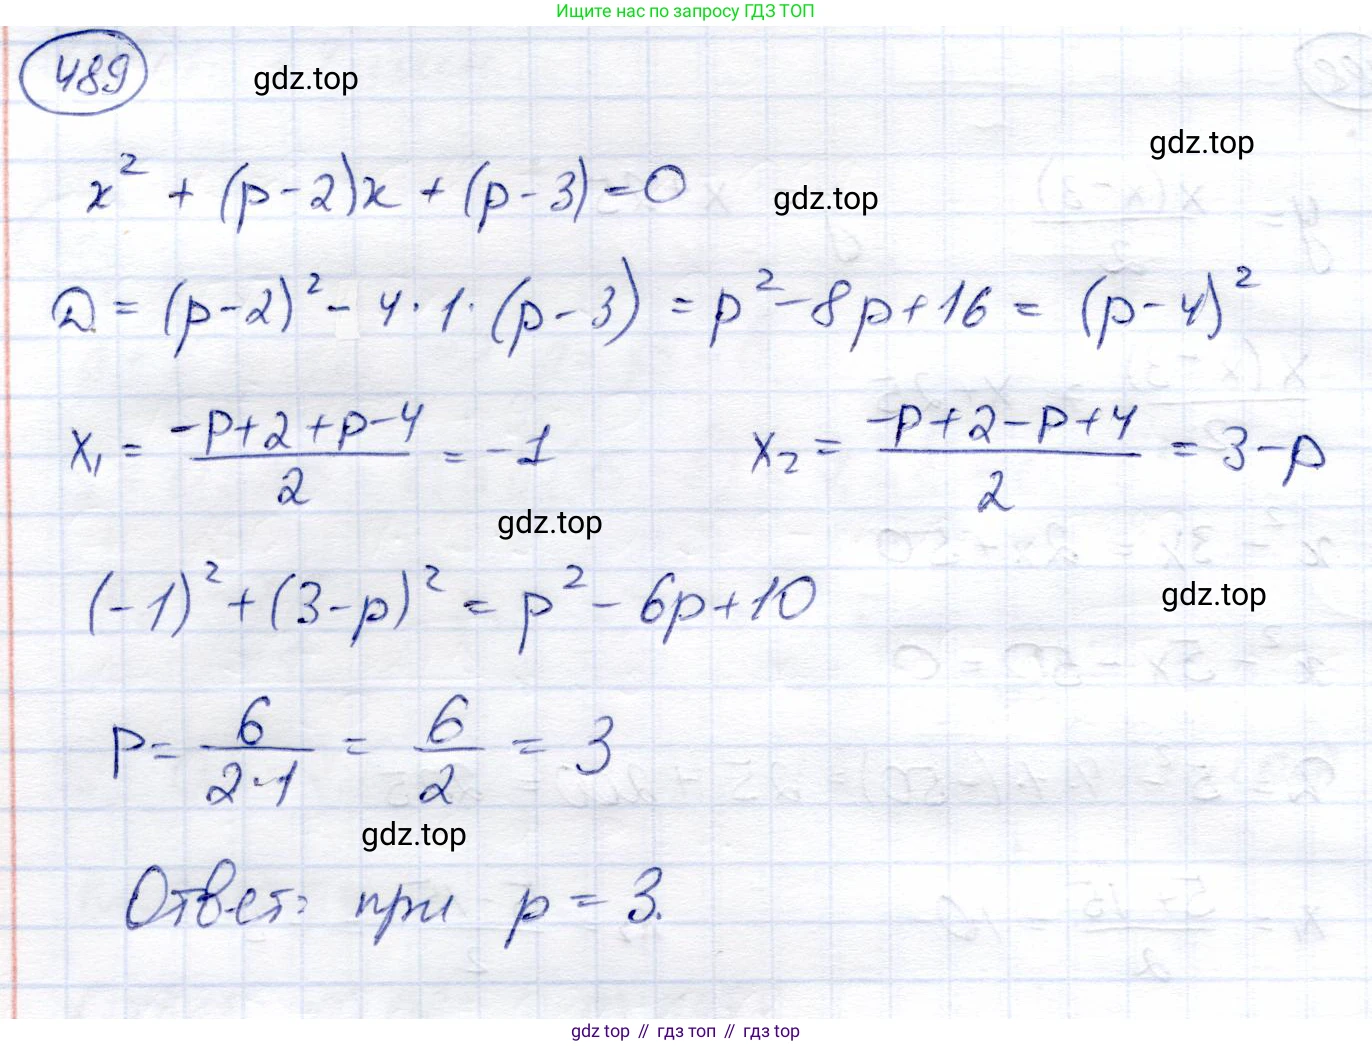 Ищите нас по запросу ГДЗ ТОП
489
gdz.top
gdz.top
x² + (p-2)x + (p-3) = 0
gdz.top
D = (p-2)² - 4·1·(p-3) = p² - 8p + 16 = (p-4)²
x₁ = (-p+2+p-4)/2 = -1 x₂ = (-p+2-p+4)/2 = 3-p
gdz.top
(-1)² + (3-p)² = p² - 6p + 10
gdz.top
p = 6/(2·1) = 6/2 = 3
gdz.top
Ответ: при p = 3.
gdz top // гдз топ // гдз top